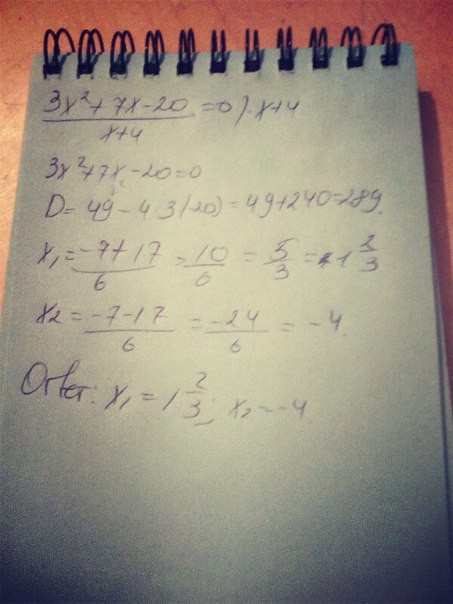 3x²+7x-20 / x+4 =0 /·x+4
3x²+7x-20=0
D= 49-4·3(-20)=49+240=289.
x₁= -7+17 / 6 = 10/6 = 5/3 = 1 2/3
x₂= -7-17 / 6 = -24/6 = -4.
Ответ: x₁=1 2/3; x₂=-4